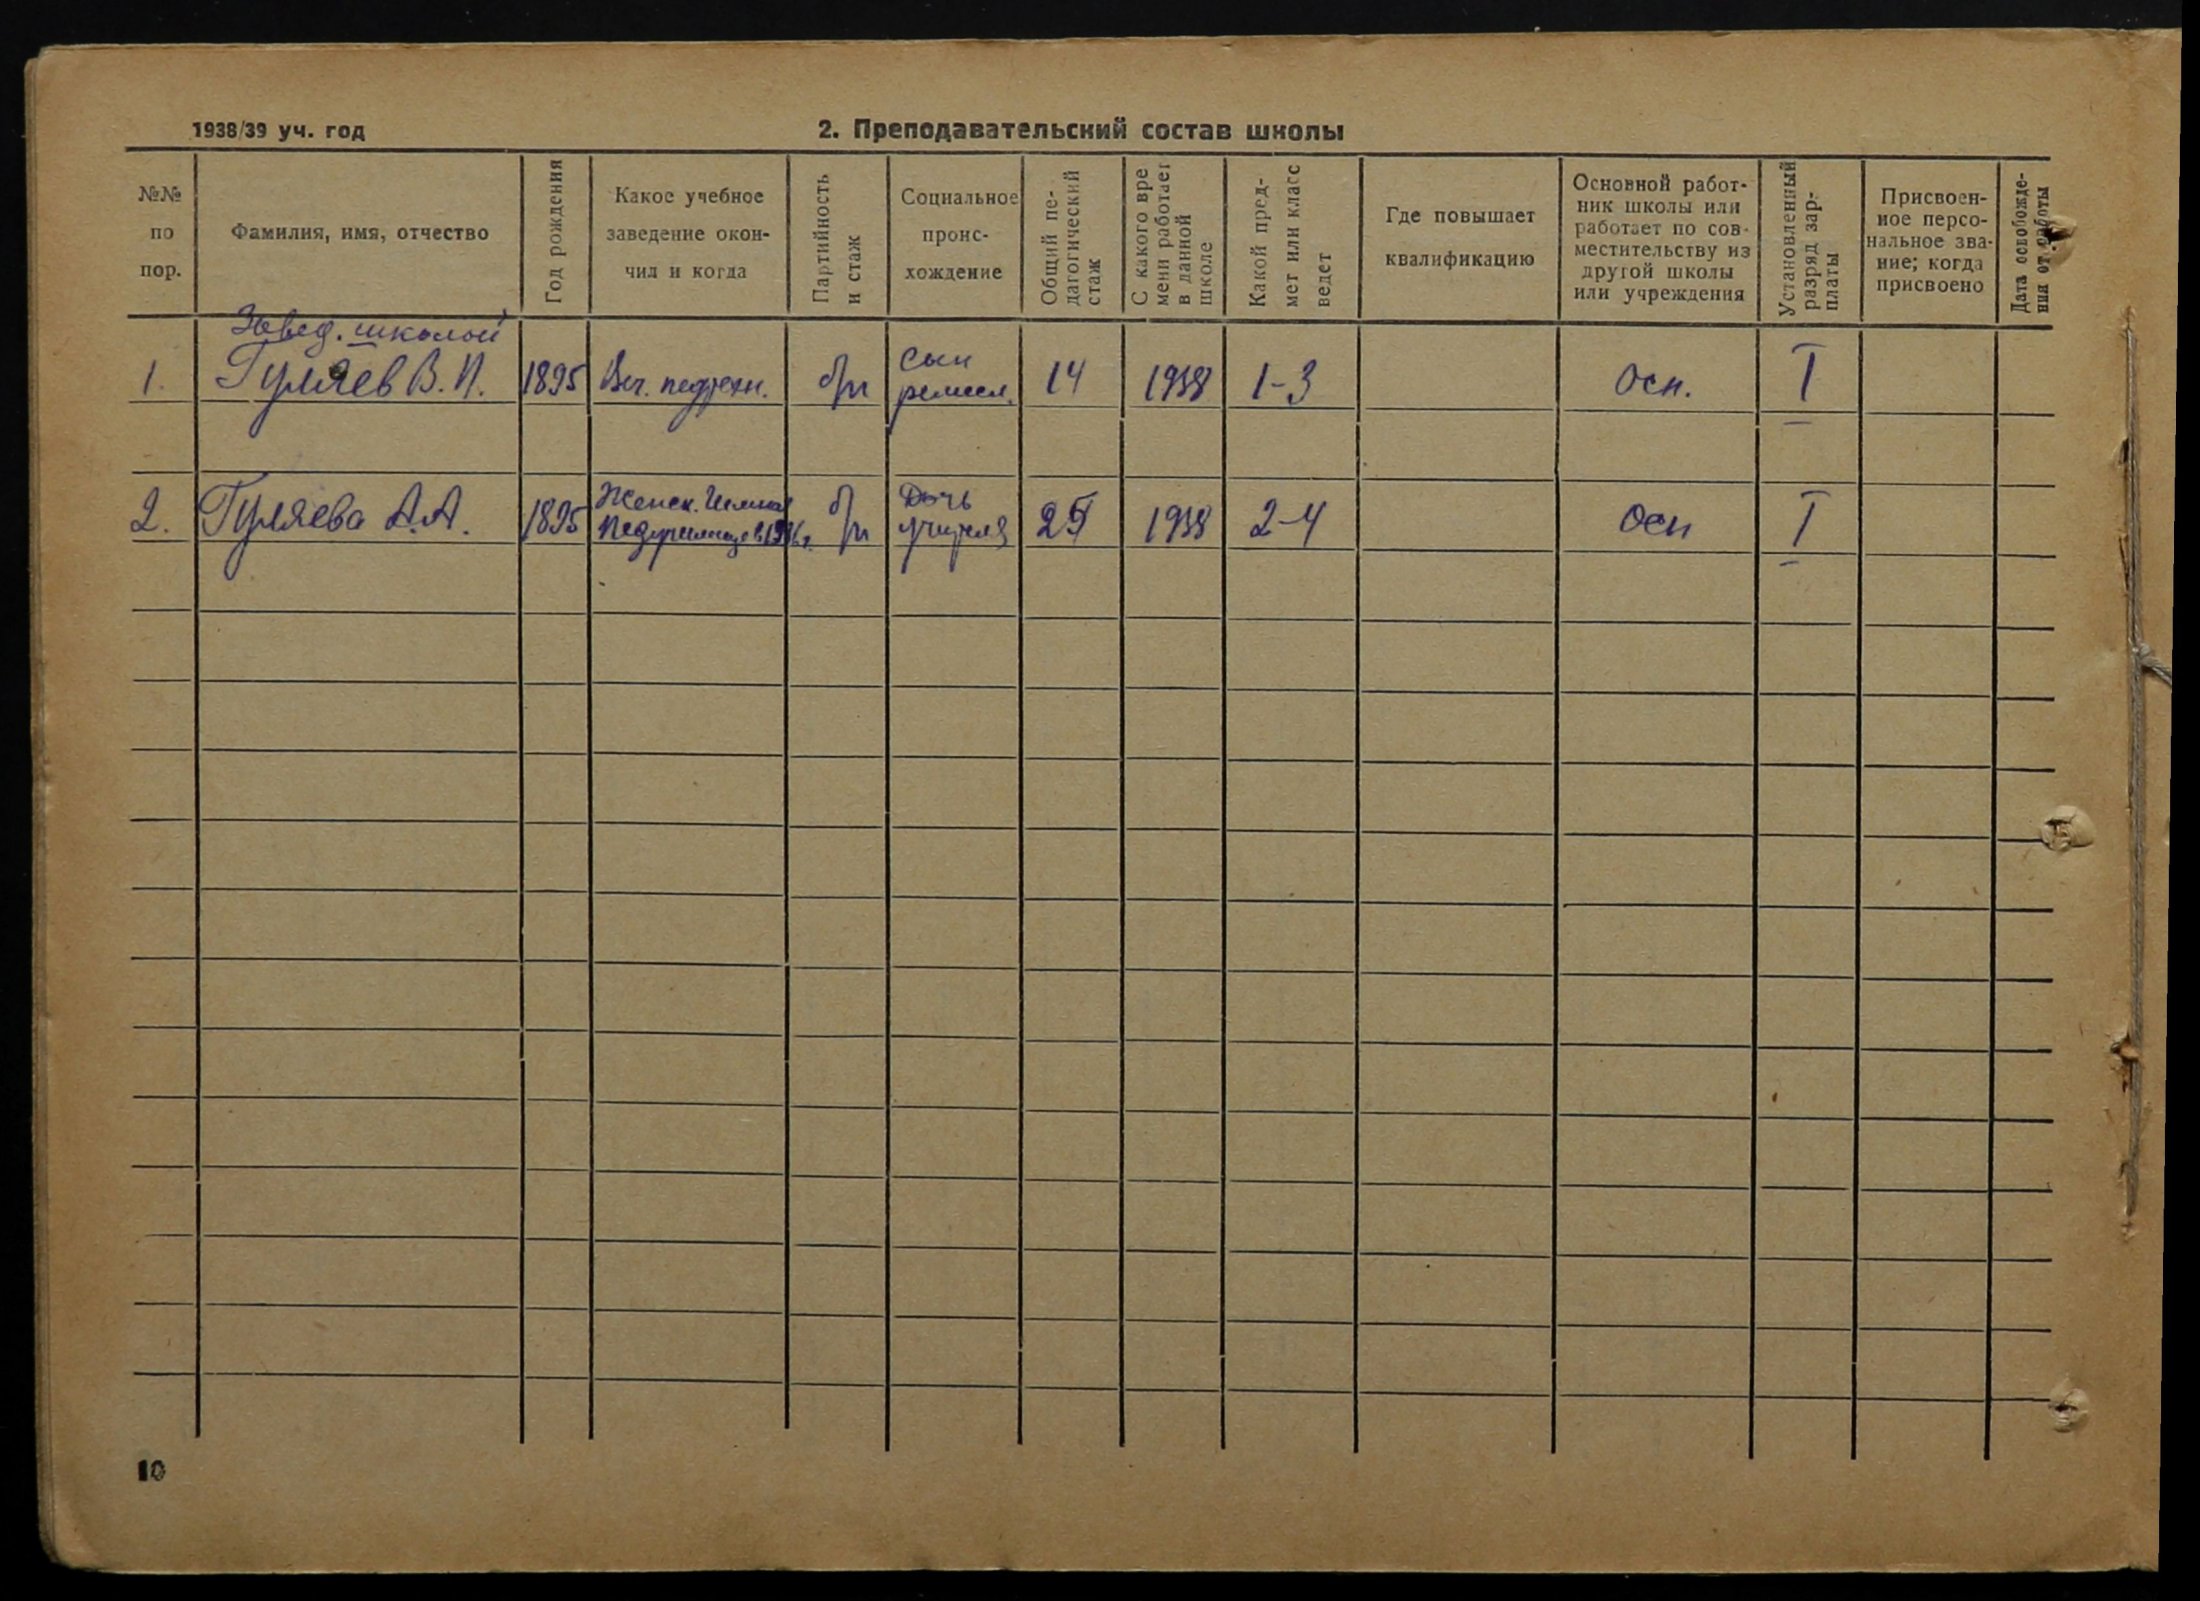 1938/39 уч. год
2. Преподавательский состав школы
№№ по пор.
Фамилия, имя, отчество
Год рождения
Какое учебное заведение окончил и когда
Партийность и стаж
Социальное происхождение
Общий педагогический стаж
С какого времени работает в данной школе
Какой предмет или класс ведет
Где повышает квалификацию
Основной работник школы или работает по совместительству из другой школы или учреждения
Установленный разряд зарплаты
Присвоенное персональное звание; когда присвоено
Дата освобождения от работы
Завед. школой
1. Гуляев В. П. 1895 Веч. педтехн. б/п сын ремесл. 14 1938 1-3 Осн. I
2. Гуляева А. А. 1895 Женск. б/п Дочь учителя 25 1938 2-4 Осн I
10